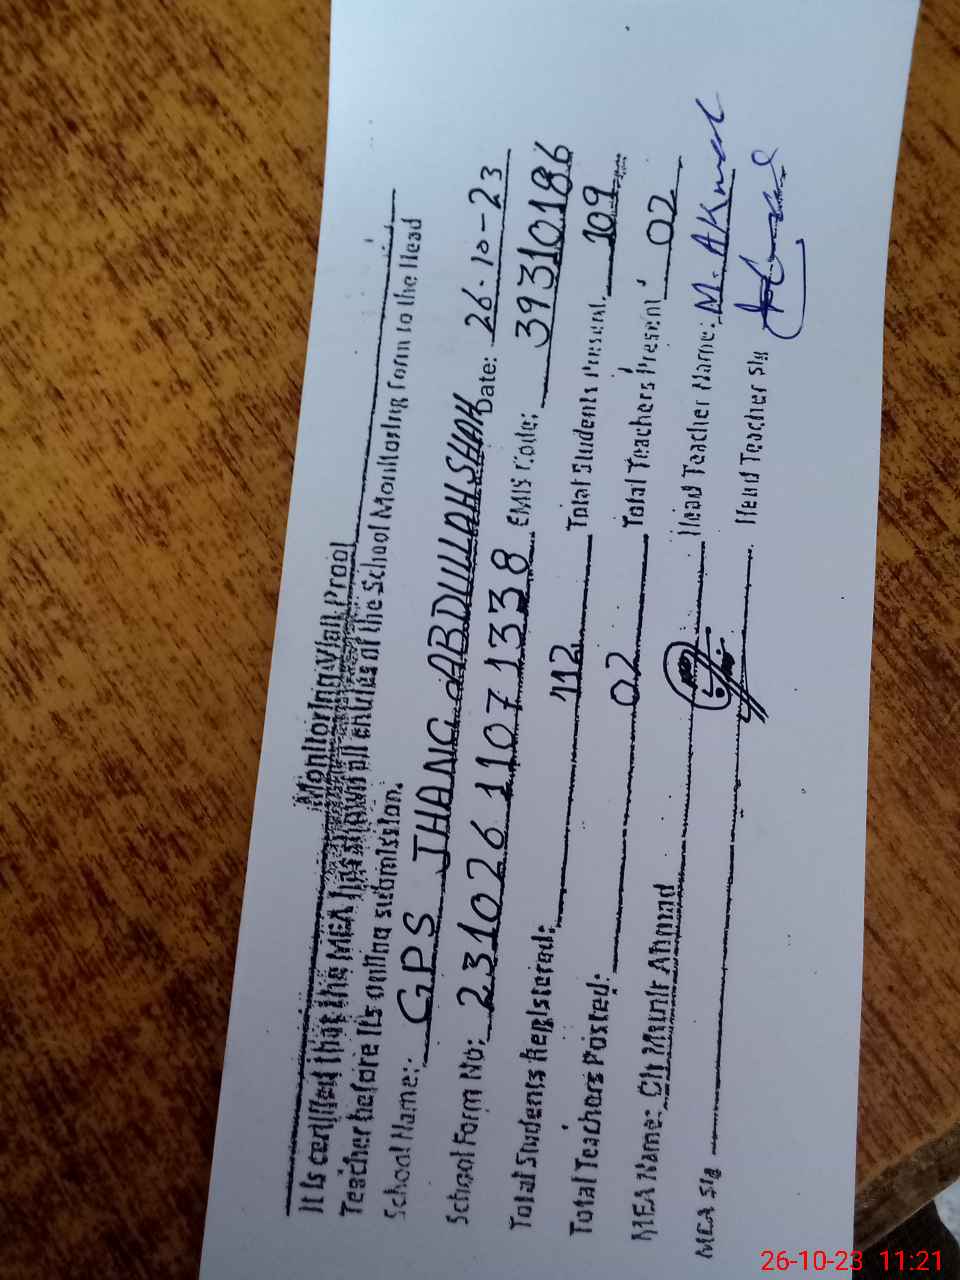 Monitoring Visit Proof
It is certified that the MEA has shown all entries of the School Monitoring Form to the Head
Teacher before its online submission.
School Name: GPS JHANG ABDULLAH SHAH Date: 26-10-23
School Form No: 2310261107 1338 EMIS Code: 39310186
Total Students Registered: 112 Total Students Present. 109
Total Teachers Posted: 02 Total Teachers Present 02
MEA Name: Ch Munir Ahmad Head Teacher Name: M. AKmal
MEA Sig Head Teacher Sig
26-10-23 11:21